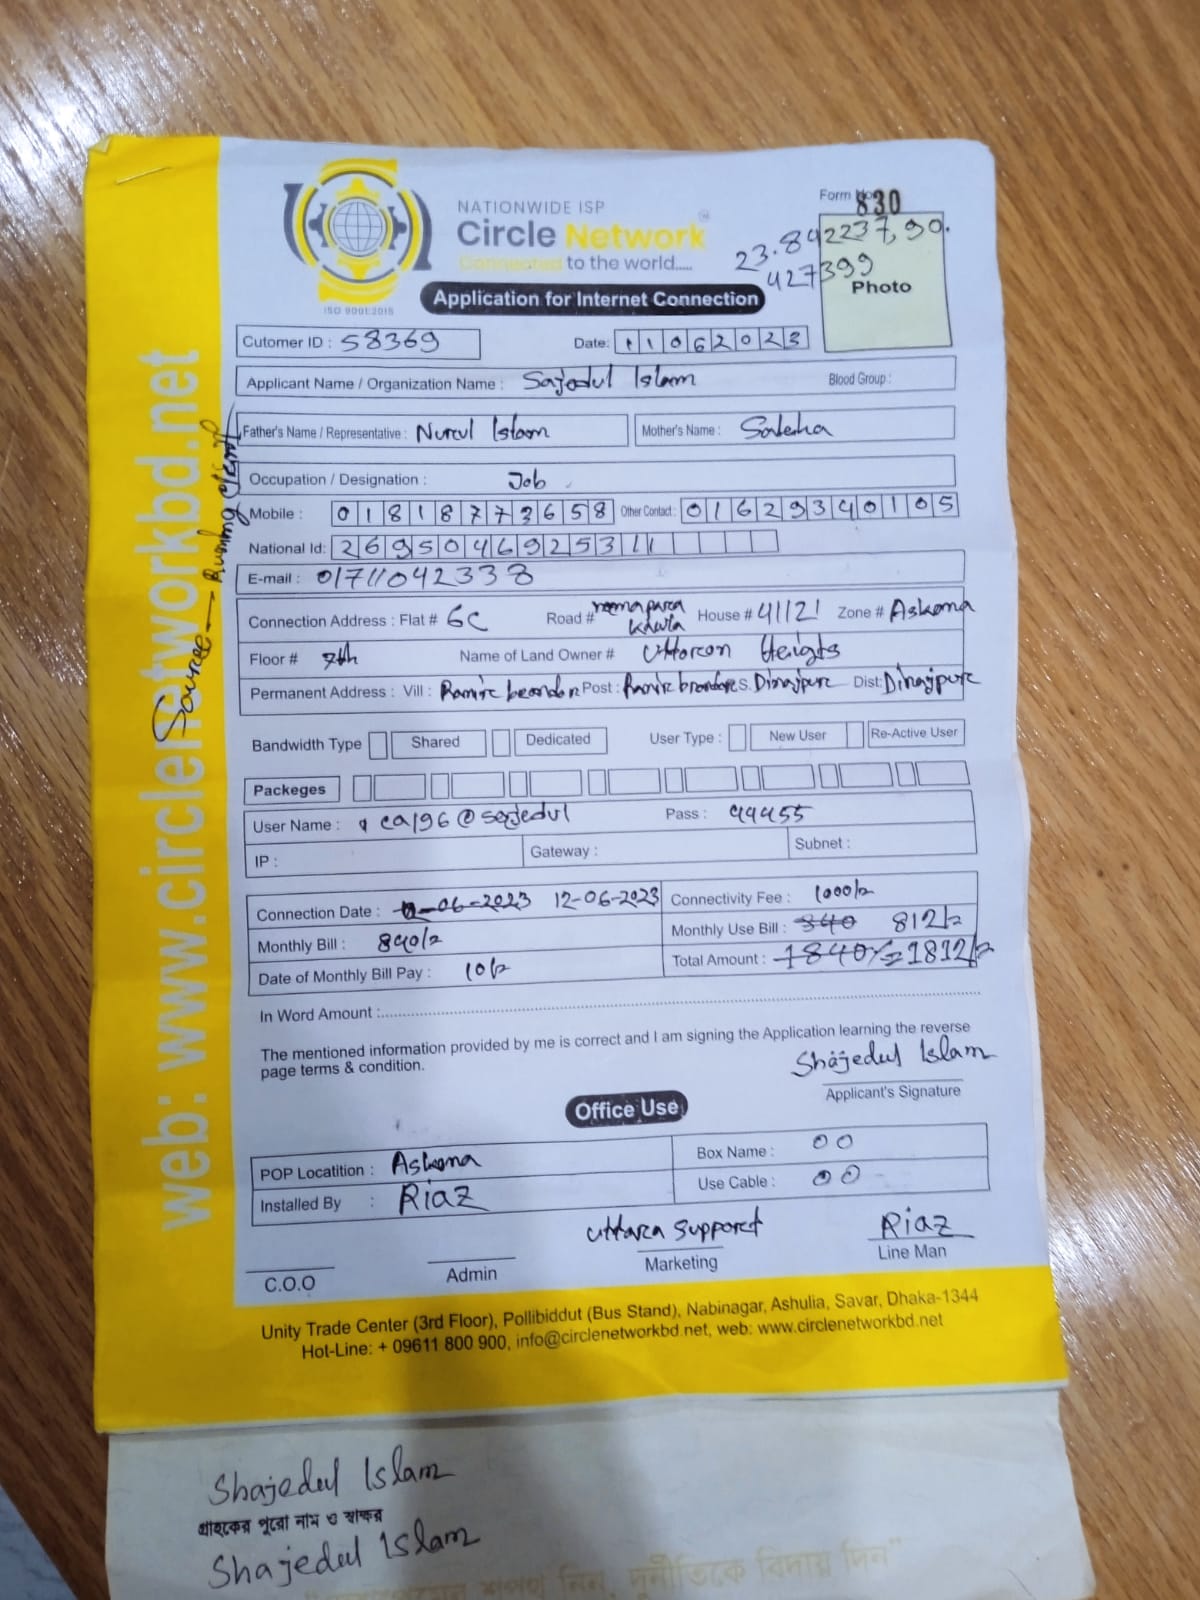 NATIONWIDE ISP
Circle Network
Connected to the world.....
ISO 9001:2015
Form No 830
23.842237, 90.
427399
Photo
Application for Internet Connection
Cutomer ID : 58369
Date: 11062023
Applicant Name / Organization Name : Sajedul Islam
Blood Group :
Father's Name / Representative : Nurul Islam
Mother's Name : Saleha
Occupation / Designation : Job
Mobile : 01818773658
Other Contact : 01629340105
National Id: 2695046925311
E-mail : 01711042338
Connection Address : Flat # 6C Road # Kawla House # 41121 Zone # Askona
Floor # 7th Name of Land Owner # Uttoron Heights
Permanent Address : Vill : Post : S. Dinajpur Dist: Dinajpur
Bandwidth Type Shared Dedicated User Type : New User Re-Active User
Packeges
User Name : ca196@sajedul Pass : 44455
IP : Gateway : Subnet :
Connection Date : -06-2023 12-06-2023
Connectivity Fee : 1000/=
Monthly Bill : 840/=
Monthly Use Bill : 840 812/=
Date of Monthly Bill Pay : 10/=
Total Amount : 1840/= = 1812/=
In Word Amount :
The mentioned information provided by me is correct and I am signing the Application learning the reverse
page terms & condition.
Shajedul Islam
Applicant's Signature
Office Use
POP Locatition : Askona
Box Name : 00
Installed By : Riaz
Use Cable : 00
C.O.O
Admin
Uttara Support
Marketing
Riaz
Line Man
Unity Trade Center (3rd Floor), Pollibiddut (Bus Stand), Nabinagar, Ashulia, Savar, Dhaka-1344
Hot-Line: + 09611 800 900, info@circlenetworkbd.net, web: www.circlenetworkbd.net
web: www.circlenetworkbd.net
Source — Running client
Shajedul Islam
গ্রাহকের পুরো নাম ও স্বাক্ষর
Shajedul Islam
নিন, দুর্নীতিকে বিদায় দিন"